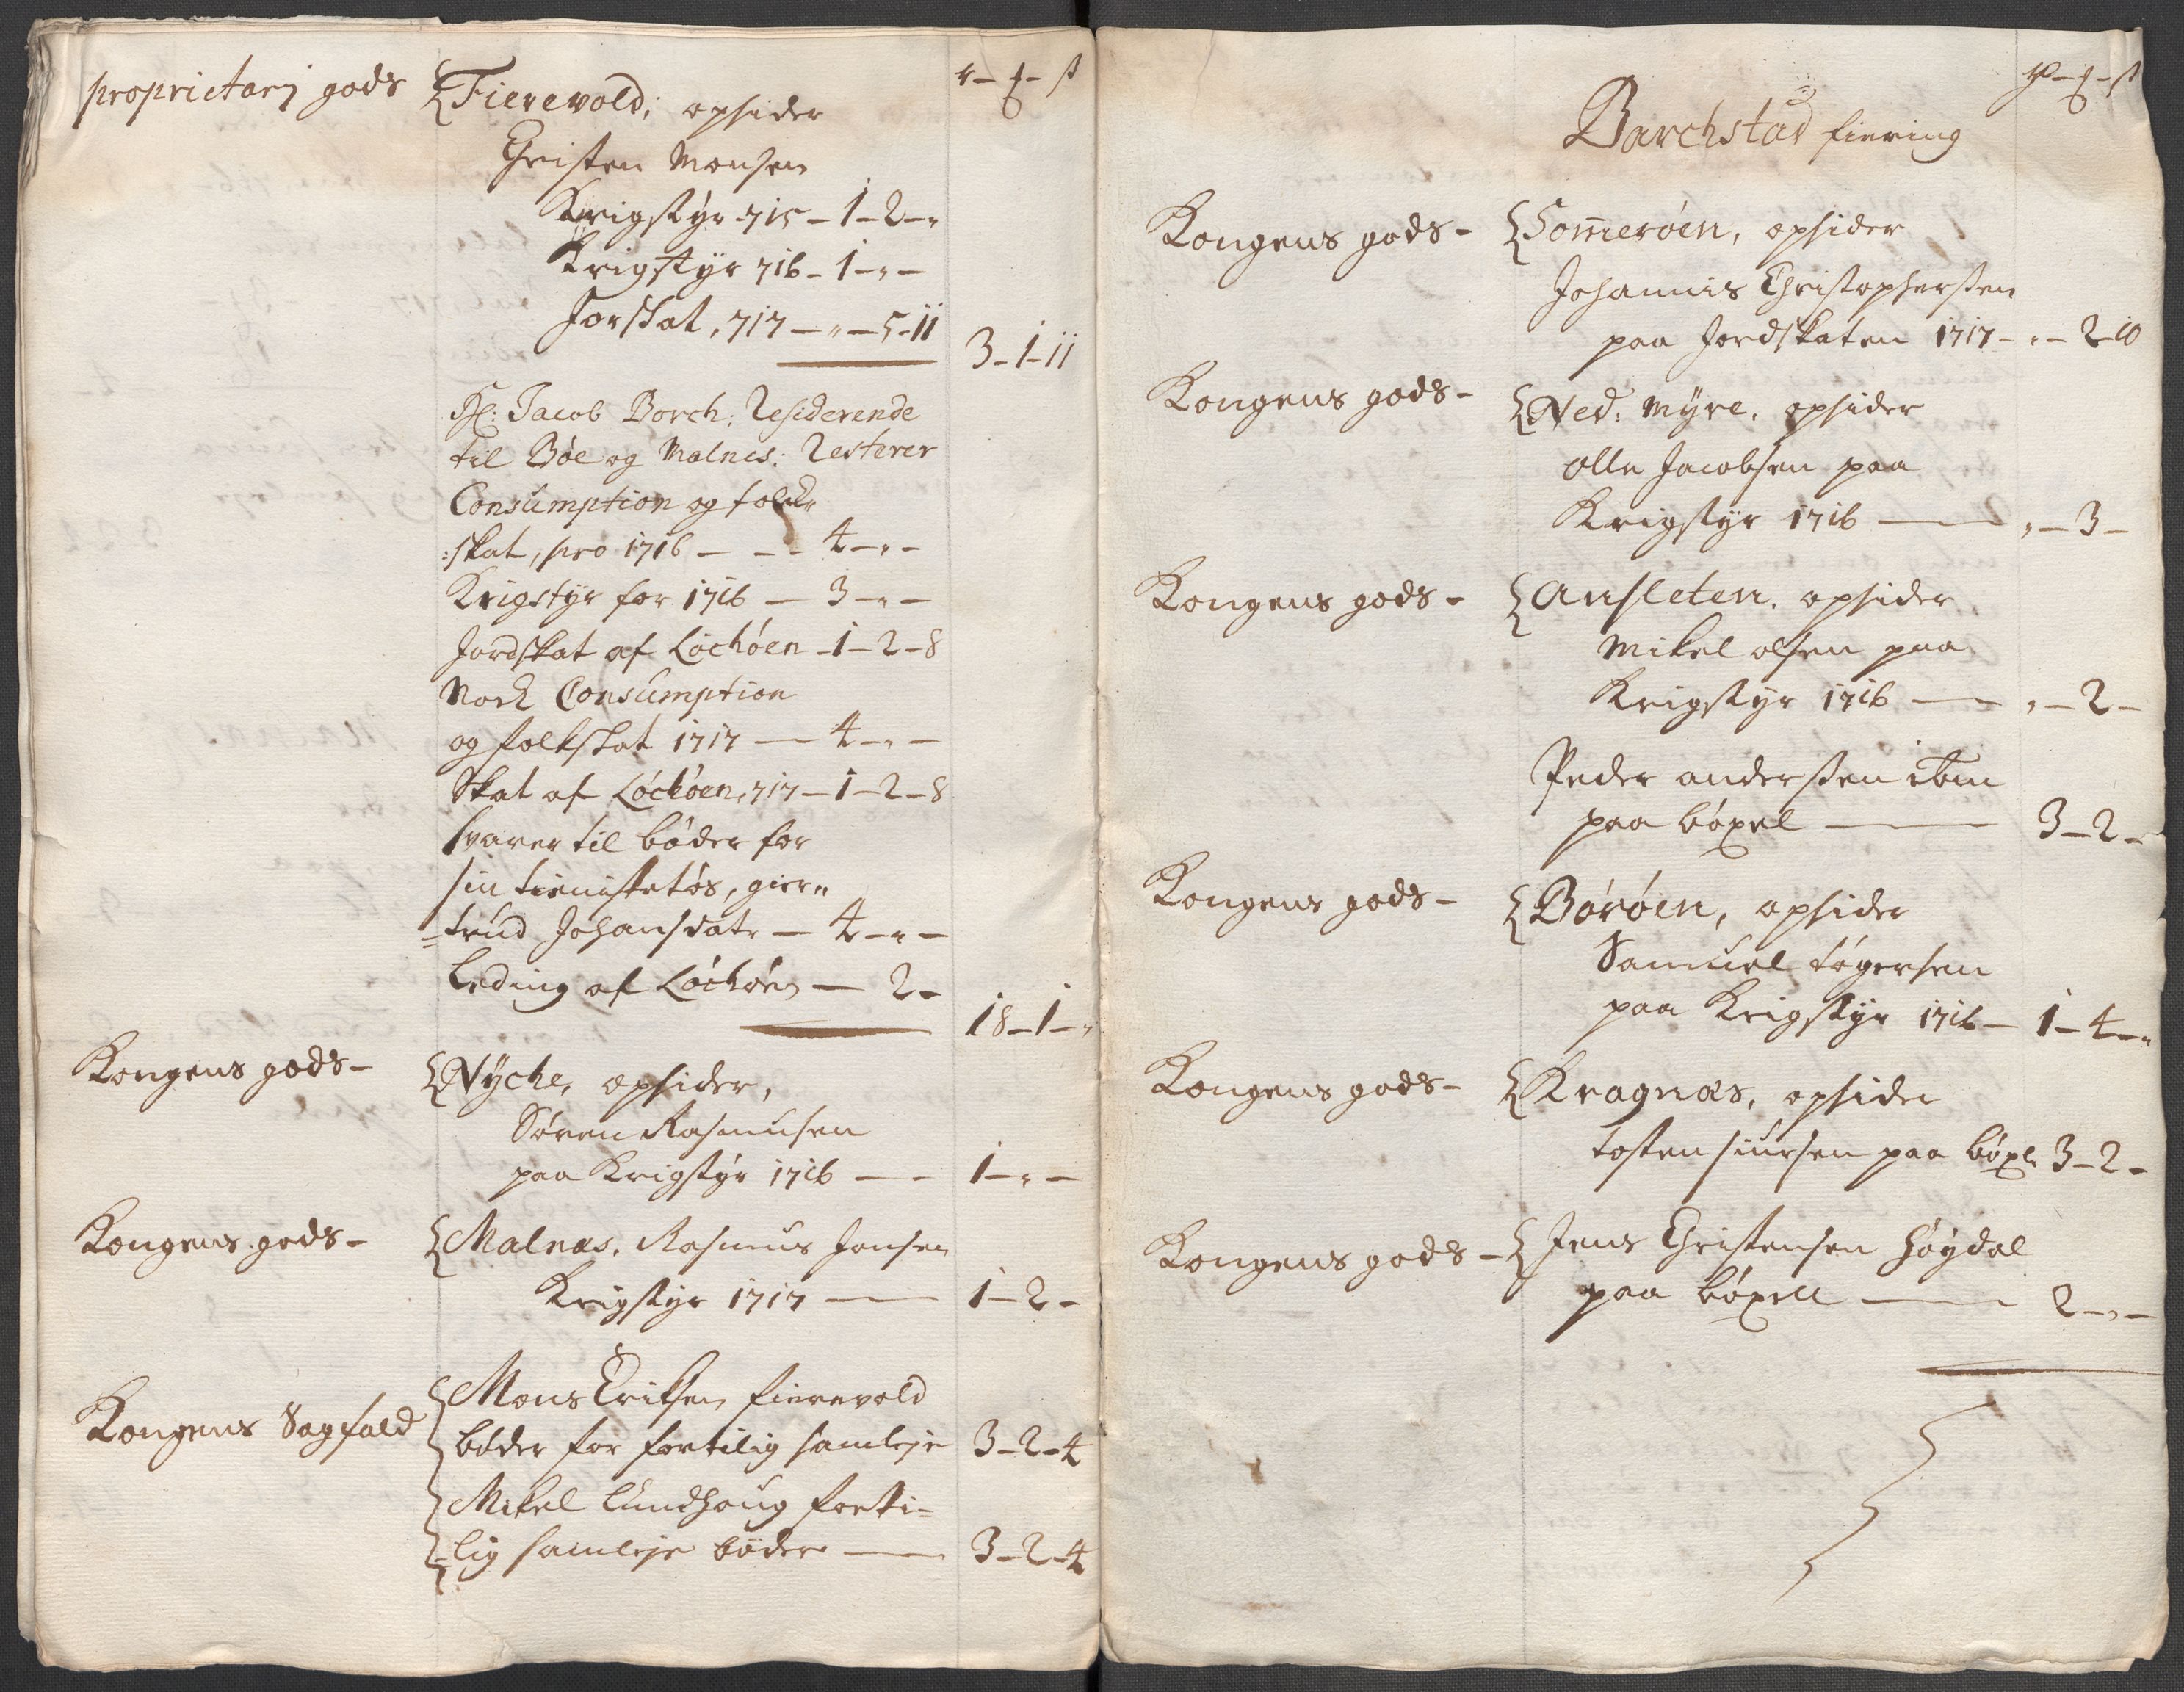 r - ƒ - ß
proprietarj gods { Fierevold; opsider
Christen Monsen
Krigstÿr 715 - 1 - 2 - "
Krigstÿr 716 - 1 - " -
Jorskat, 717 - " - 5 - 11
3 - 1 - 11
Hr: Jacob Borch: Residerende
til Bøe og Malnes: Resterer
Consumption og folck"
:skat, pro 1716 - - - 4 - " -
Krigstÿr for 1716 - 3 - " -
Jordskat af Löchöen - 1 - 2 - 8
Nock Consumption
og folkskat 1717 - 4 - " -
Skat af Löchöen, 717 - 1 - 2 - 8
svarer til böder for
sin tienistetös, gier"
=trud Johansdatr - 4 - " -
Leding af Löchöen - 2 -
18 - 1 - "
Kongens gods - { Nÿche, opsider,
Søren Rasmusen
paa Krigstÿr 1716 - - 1 - " -
Kongens gods - { Malnæs. Rasmus Jonsen
Krigstÿr 1717 - 1 - 2 -
Kongens Sagfald { Mons Eriksen fierevold
böder for fortilig samleje 3 - 2 - 4
{ Mikel Lundhoug forti=
-lig samleje böder - 3 - 2 - 4
rd - ƒ - ß
Barchstad fiering
Kongens gods - { Som̄eröen, opsider
Johannis Christophersen
paa Jordskaten 1717 - " - 2 - 10
Kongens gods - { Ned: Mÿre. opsider
olle Jacobsen paa
Krigstÿr 1716 - " - 3 -
Kongens gods - { Ansleten. opsider
Mikel olsen paa
Krigstÿr 1716 - " - 2 -
Peder andersen ibm
paa böxel - 3 - 2 -
Kongens gods - { Böröen, opsider
Samuel tögersen
paa Krigstÿr 1716 - 1 - 4 - "
Kongens gods - { Kragnæs, opsider
tosten siursen paa böxl: 3 - 2 -
Kongens gods - { Jens Christensen höÿdal
paa böxell - 2 - " -